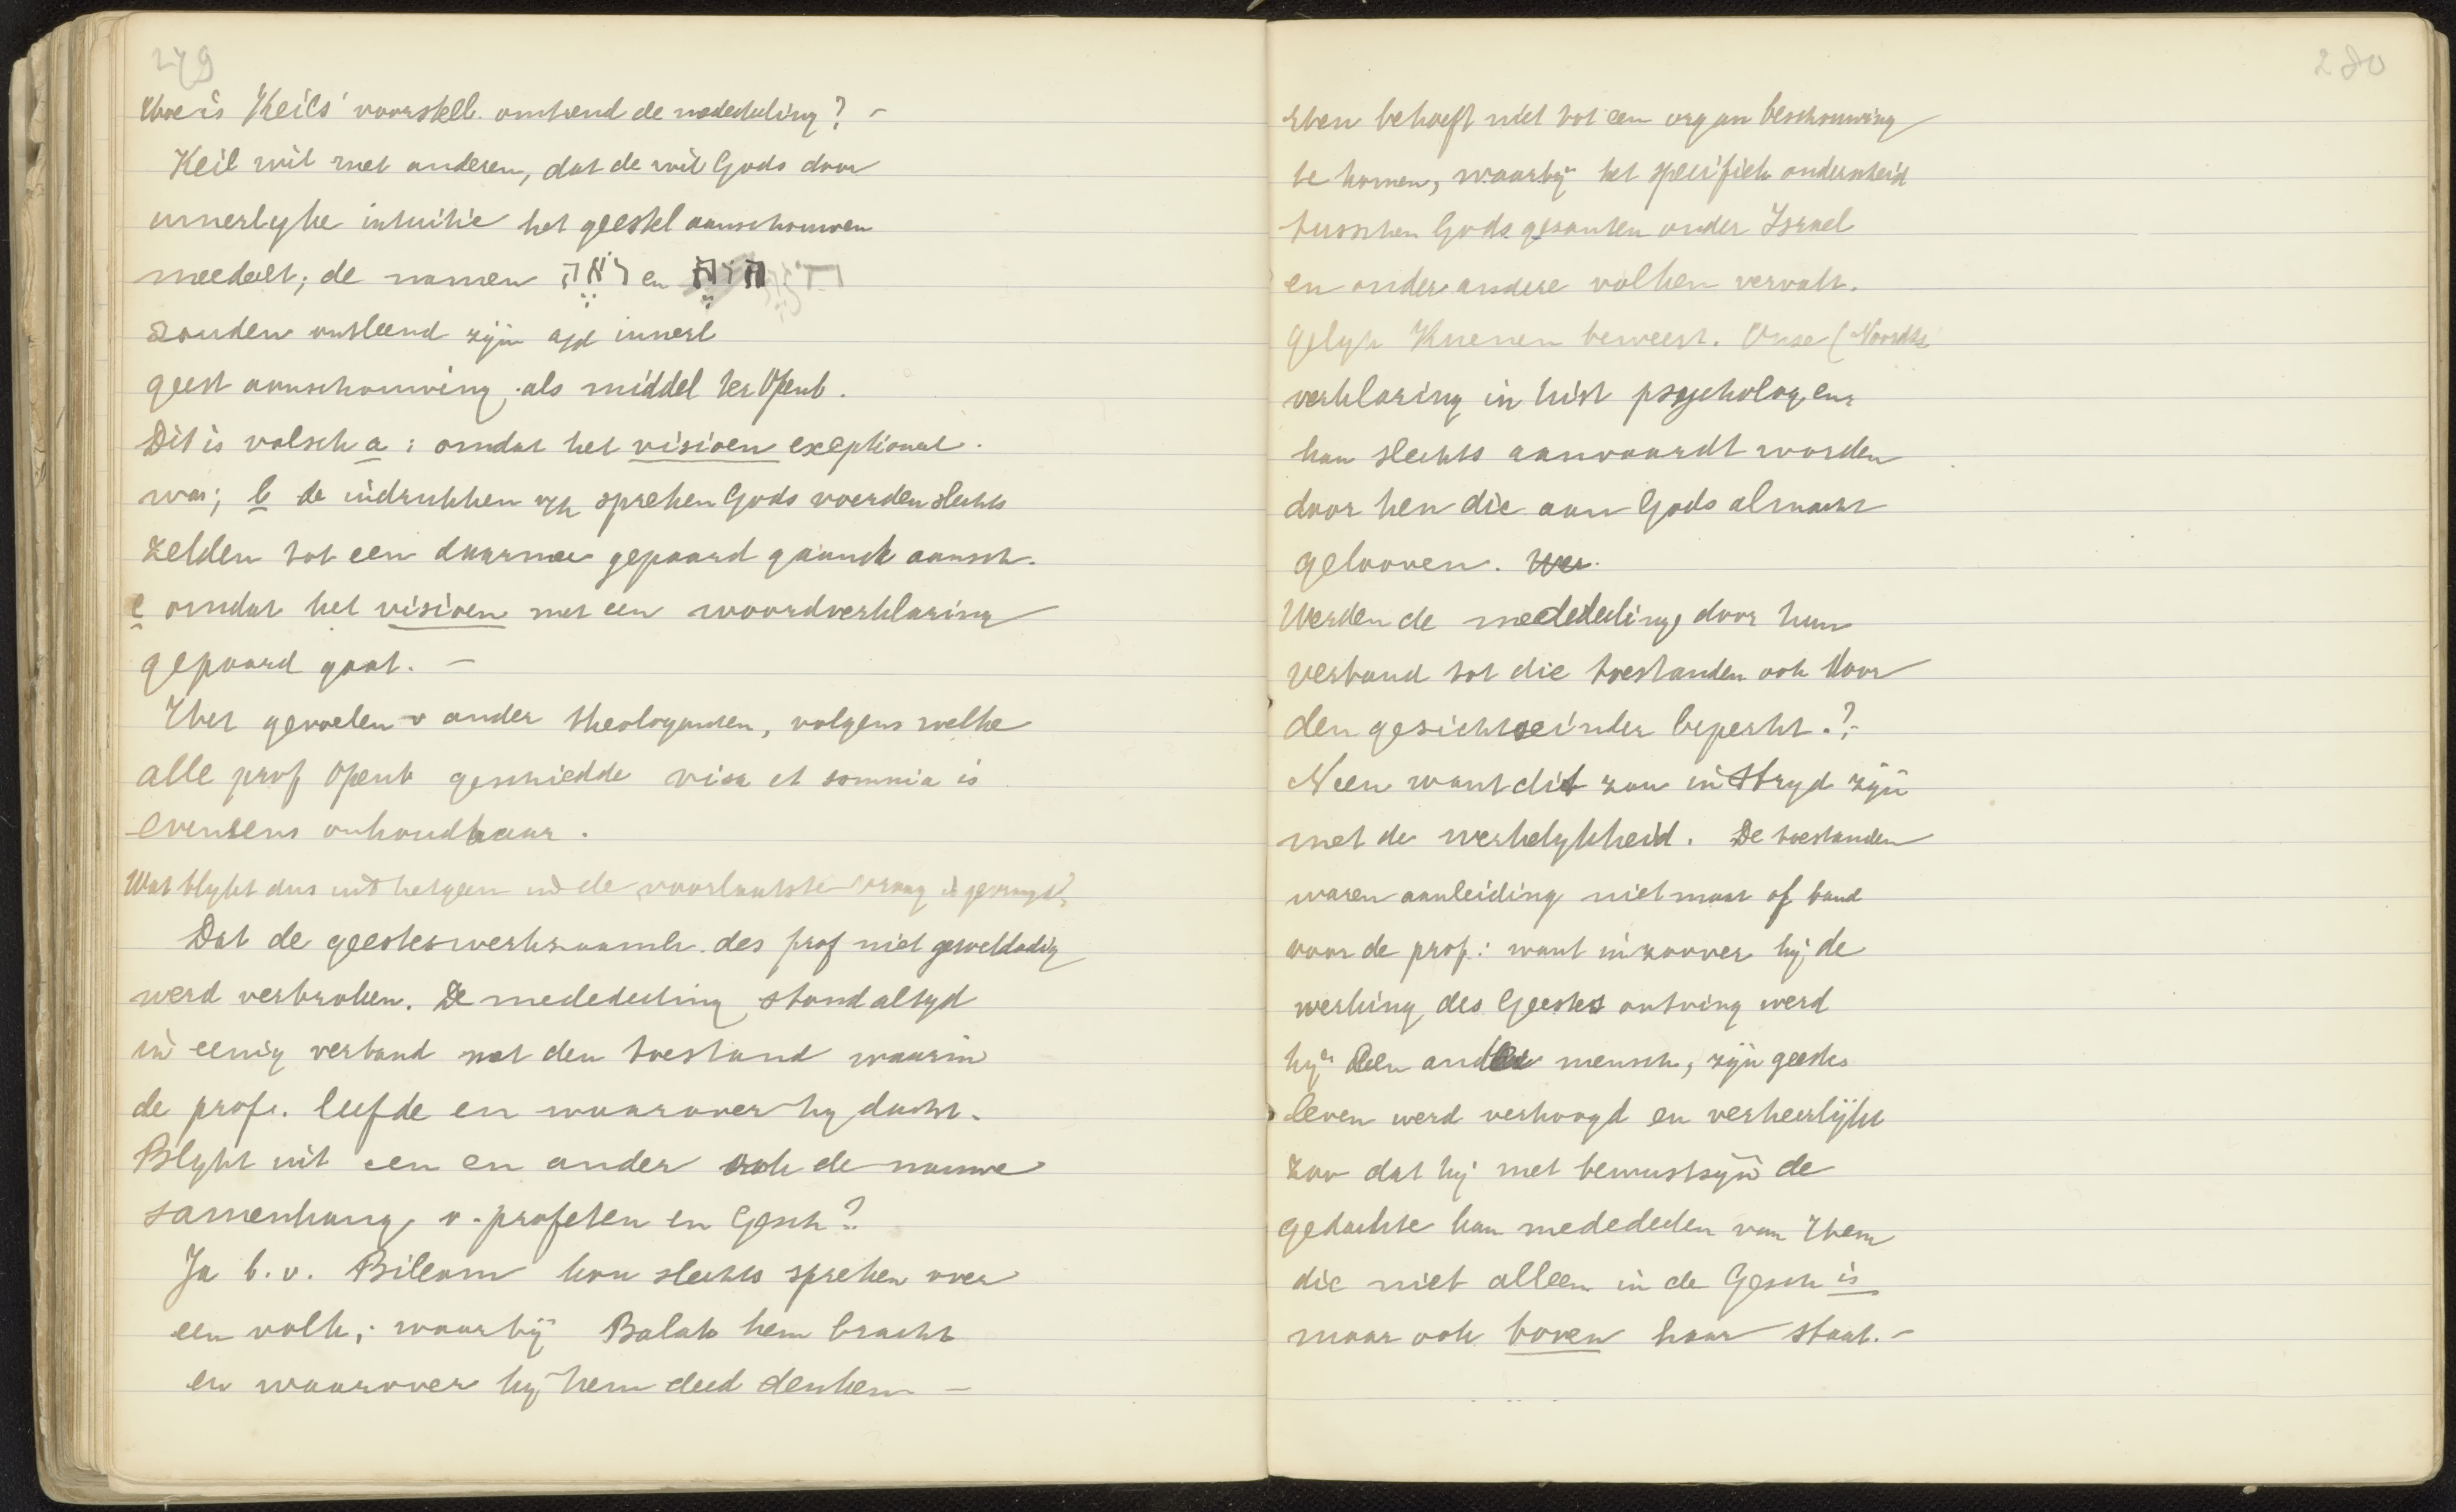 279
Hoe is Keils' voorstell. omtrend de mededeeling? –
Keil wil met anderen, dat de wil Gods door
innerlyke intuitie het geestel aanschouwen
meedeelt; de namen ראה en חזה
zouden ontleend zijn a/d innerl
geest aanschouwing, als middel ter Openb.
Dit is valsch a: omdat het visioen exeptionael.
was; b de indrukken v/h spreken Gods werden slechts
zelden tot een daarmee gepaard gaande aansch.
c omdat het visioen met een woordverklaring
gepaard gaat. –
Het gevoelen v ander theologanten, volgens welke
alle prof Openb geschiedde visa et somnia is
eveneens onhoudbaar.
Wat blykt dus uit hetgeen in de voorlaatste vraag is gevraagd?
Dat de geesteswerkzaamh. des prof niet geweldadig
werd verbroken. De mededeeling stond altyd
in eenig verband met den toestand waarin
de prof. leefde en waarover hy dacht.
Blykt uit een en ander ook de nauwe
samenhang v. profeten en Gesch?
Ja b.v. Bileam kon slechts spreken over
een volk; waarbij Balak hem bracht
en waarover hy hem deed denken –
280
Men behoeft niet tot een organ beschouwing
te komen, waarby het specifiek onderscheid
tusschen Gods gezanten onder Israel
en onder andere volken vervalt.
gelyk Kuenen beweert. Onze (Noordtz
verklaring in hist psycholog enz
kan slechts aanvaardt worden
door hen die aan Gods almacht
gelooven. Wer
Werden de mededeeling, door hun
verband tot die toestanden ook door
den gesichtseinder beperkt.?
Neen want dit zou in stryd zijn
met de werkelykheid. De toestanden
waren aanleiding niet maat of band
voor de prof: want in zoover hij de
werking des Geestes ontving werd
hij een ander mensch, zijn geestes
leven werd verhoogd en verheerlijkt
zoo dat hij met bewustzijn de
gedachte kan mededeelen van Hem
die niet alleen in de Gesch is
maar ook boven haar staat. –